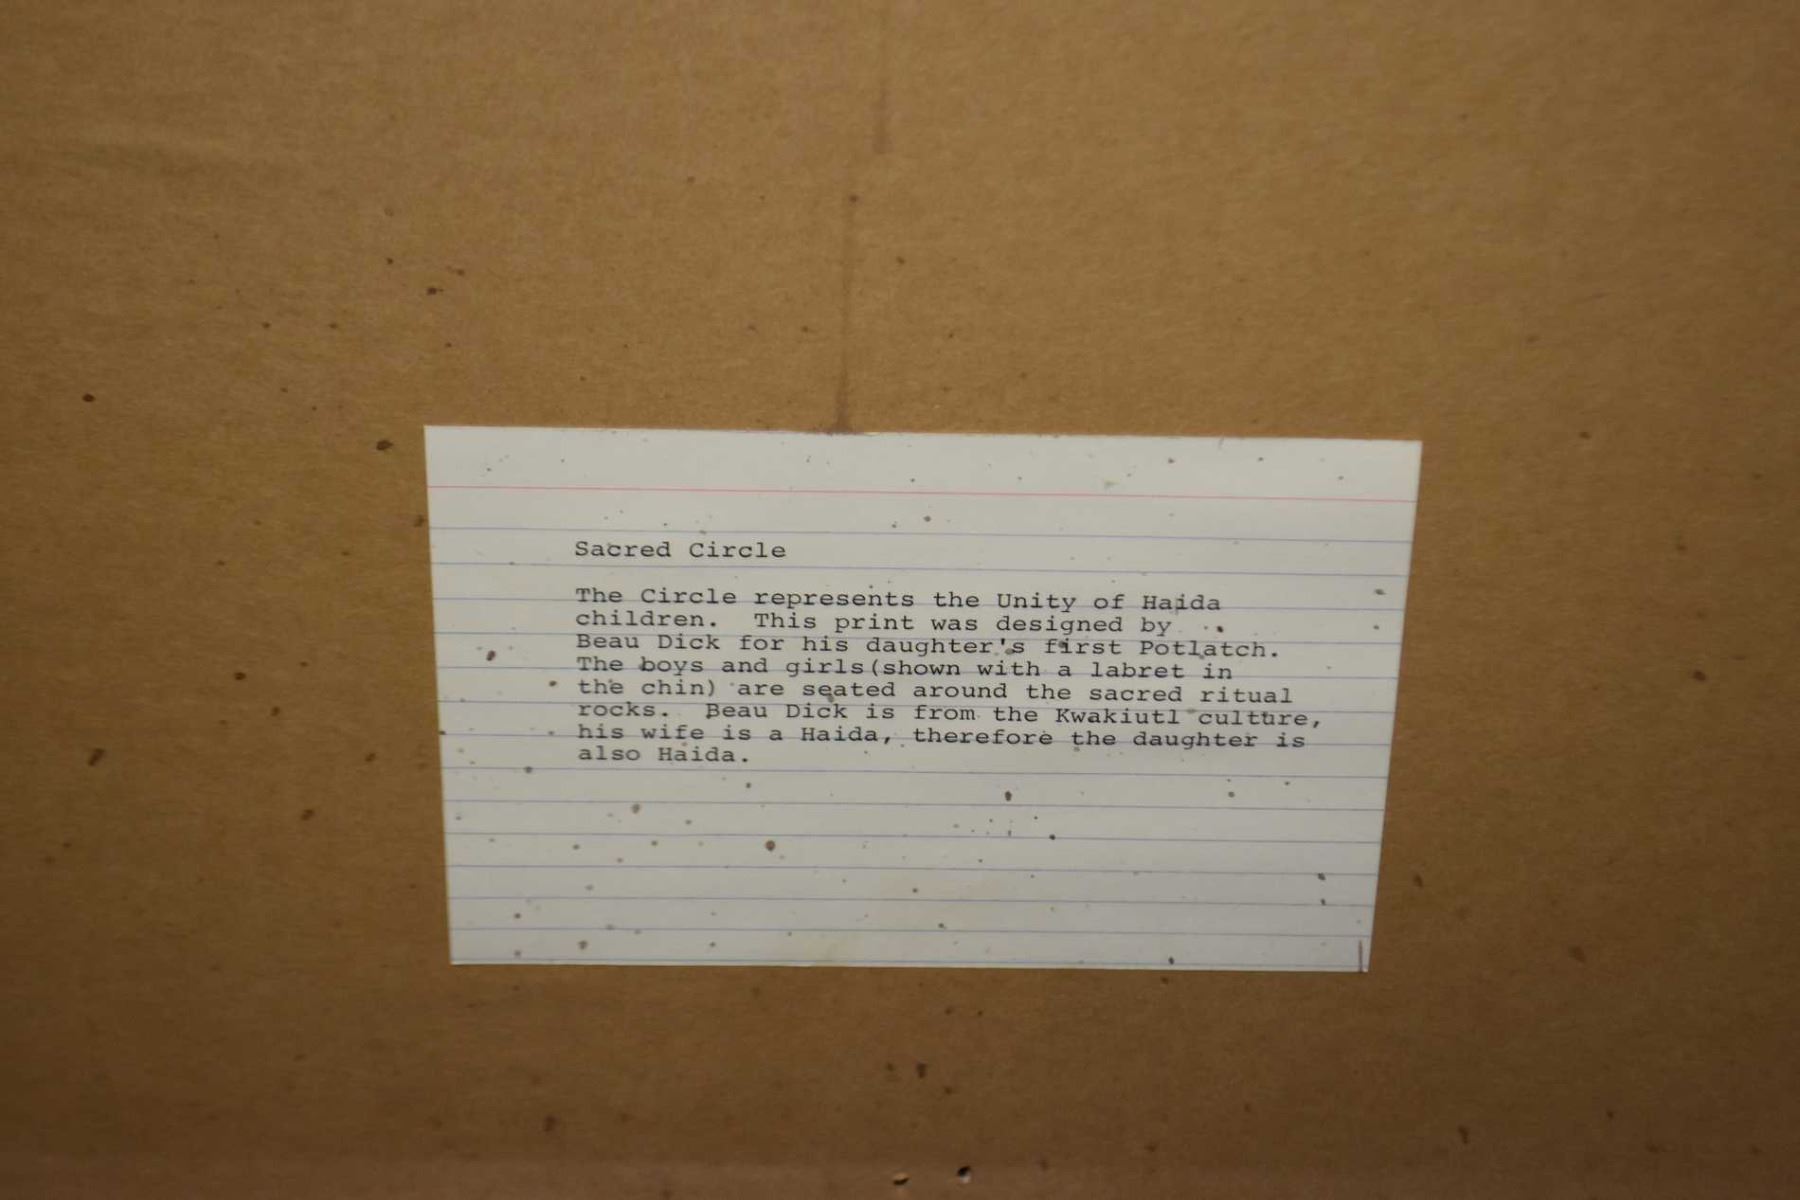 Sacred Circle
The Circle represents the Unity of Haida
children. This print was designed by
Beau Dick for his daughter's first Potlatch.
The boys and girls(shown with a labret in
the chin) are seated around the sacred ritual
rocks. Beau Dick is from the Kwakiutl culture,
his wife is a Haida, therefore the daughter is
also Haida.